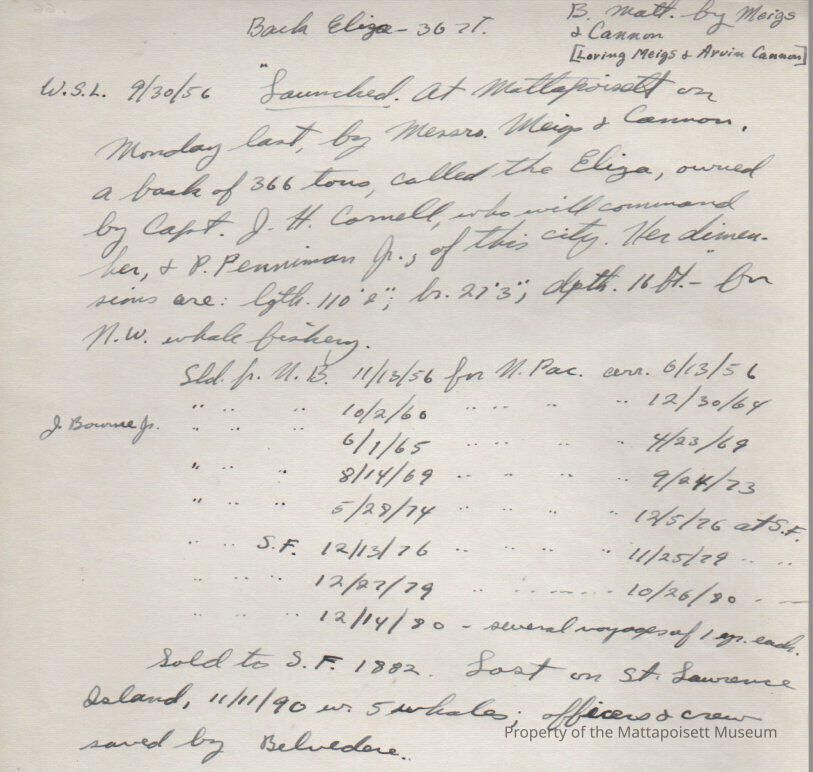 Bark Eliza - 36 7T.
B. Matt. by Meigs
& Cannon
[Loring Meigs & Arvin Cannon]
W.S.L. 9/30/56 "Launched. At Mattapoisett on
Monday last, by Messrs. Meigs & Cannon,
a bark of 366 tons, called the Eliza, owned
by Capt. J. H. Cornell, who will command
her, & P. Penniman Jr., of this city. Her dimen-
sions are: lgth. 110'2"; br. 27'3"; dpth. 16 ft. - for
N.W. whale fishery.
Sld. fr. N.B. 11/13/56 for N. Pac. arr. 6/13/56
" " " 10/2/60 " " " " 12/30/64
J. Bourne Jr. " " " 6/1/65 " " " " 4/23/69
" " " 8/14/69 " " " " 9/24/73
" " " 5/28/74 " " " " 12/5/76 at S.F.
" " S.F. 12/13/76 " " " " 11/25/79 " "
" " " 12/27/79 " " " " 10/26/80 " "
" " " 12/14/80 - several voyages of 1 yr. each.
Sold to S.F. 1882. Lost on St. Lawrence
Island, 11/11/90 w. 5 whales; officers & crew
saved by Belvedere.
Property of the Mattapoisett Museum